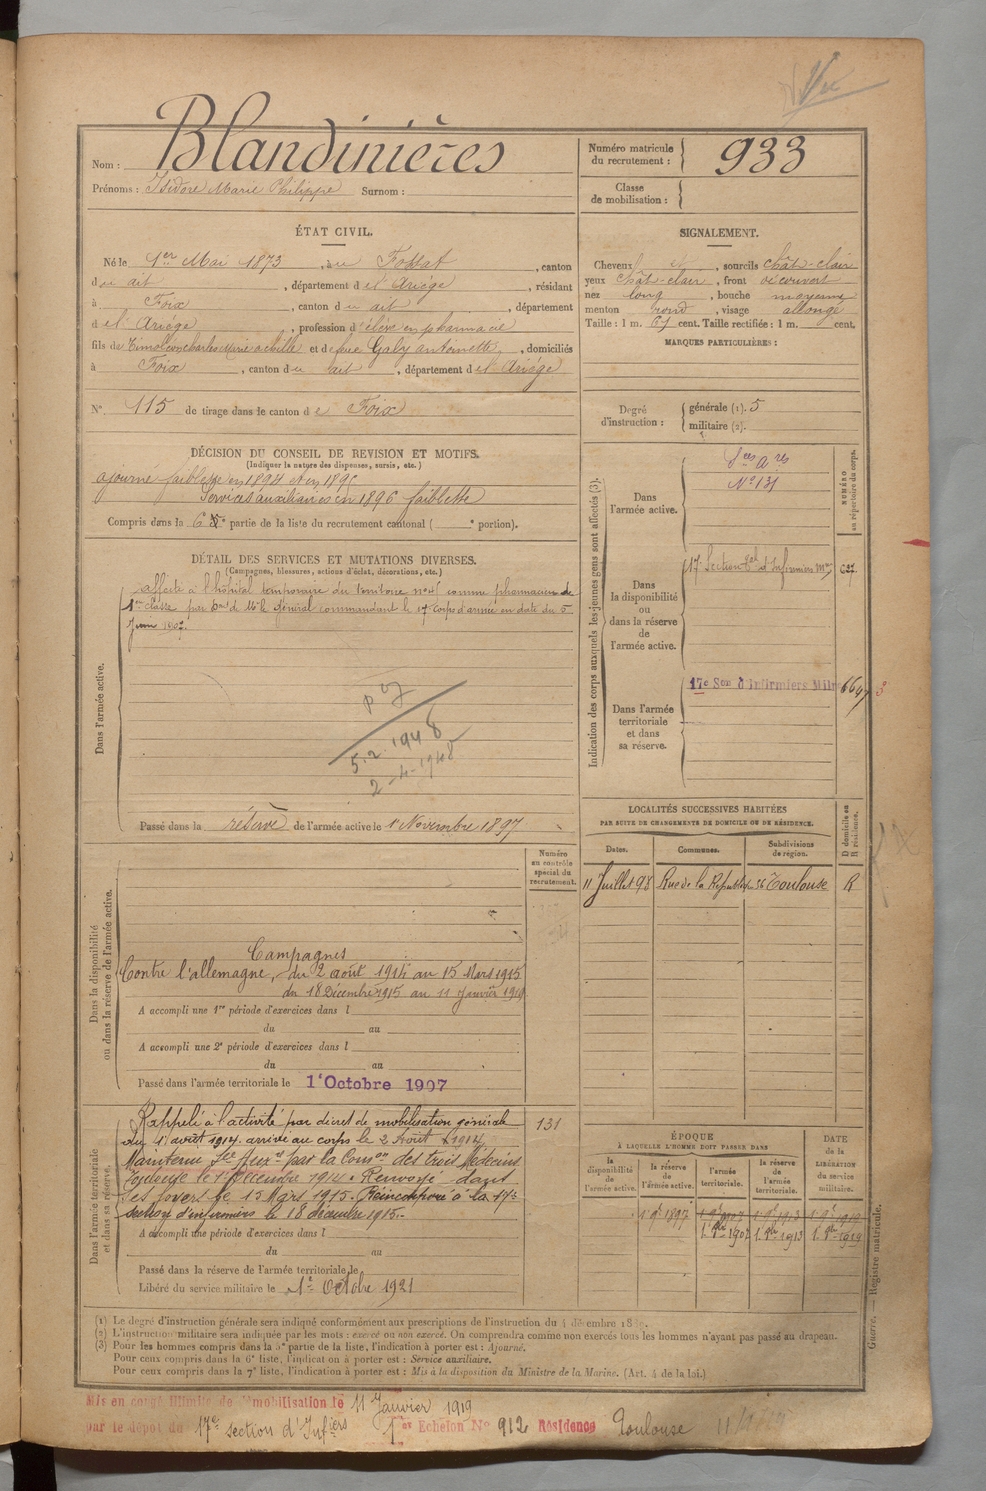 Vu
Nom : Blandinières
Prénoms : Isidore Marie Philippe Surnom :
Numéro matricule du recrutement : 933
Classe de mobilisation :
ÉTAT CIVIL.
Né le 1er Mai 1873, au Fossat, canton
du dit, département de l'Ariège, résidant
à Foix, canton du dit, département
de l'Ariège, profession d'élève en pharmacie
fils de Timoléon Charles Marie Achille et de feue Gaby Antoinette, domiciliés
à Foix, canton du dit, département de l'Ariège
N° 115 de tirage dans le canton de Foix
SIGNALEMENT.
Cheveux et, sourcils chât-clair
yeux chât-clair, front découvert
nez long, bouche moyenne
menton rond, visage allongé
Taille : 1 m. 67 cent. Taille rectifiée : 1 m. cent.
MARQUES PARTICULIÈRES :
Degré d'instruction : générale (1). 5
militaire (2).
DÉCISION DU CONSEIL DE REVISION ET MOTIFS.
(Indiquer la nature des dispenses, sursis, etc.)
ajourné faiblesse en 1894 et en 1895
Services auxiliaires en 1896 faiblesse
Compris dans la 6e partie de la liste du recrutement cantonal ( e portion).
DÉTAIL DES SERVICES ET MUTATIONS DIVERSES.
(Campagnes, blessures, actions d'éclat, décorations, etc.)
Dans l'armée active.
affecté à l'hôpital temporaire du territoire n° 45 comme pharmacien de
1re classe par de Mr le Général commandant le 17e corps d'armée en date du 5
Juin 1907.
5.2.1948
2-4-1948
Passé dans la réserve de l'armée active le 1er Novembre 1897
Indication des corps auxquels les jeunes gens sont affectés (3).
NUMÉRO au répertoire du corps.
Dans l'armée active.
Sces Ares
N° 131
Dans la disponibilité ou dans la réserve de l'armée active.
17e Section d'Infirmiers Mres 627
Dans l'armée territoriale et dans sa réserve.
17e Son d'Infirmiers Milres
LOCALITÉS SUCCESSIVES HABITÉES
PAR SUITE DE CHANGEMENTS DE DOMICILE OU DE RÉSIDENCE.
Dates. Communes. Subdivisions de région. D domicile ou R résidence.
11 Juillet 98 Rue de la République 26 Toulouse R
Dans la disponibilité ou dans la réserve de l'armée active.
Numéro au contrôle spécial du recrutement.
Campagnes
Contre l'allemagne, du 2 août 1914 au 15 Mars 1915
du 18 Décembre 1915 au 11 Janvier 1919
A accompli une 1re période d'exercices dans l
du au
A accompli une 2e période d'exercices dans l
du au
Passé dans l'armée territoriale le 1er Octobre 1907
Dans l'armée territoriale et dans sa réserve.
Rappelé à l'activité par décret de mobilisation générale 131
du 1er août 1914. arrivé au corps le 2 Août 1914
Maintenu Sce Auxre par la Comon des trois Médecins
Toulouse le 1er Décembre 1914. Renvoyé dans
ses foyers le 15 Mars 1915. Réincorporé à la 17e
section d'infirmiers le 18 décembre 1915.
A accompli une période d'exercices dans l
du au
Passé dans la réserve de l'armée territoriale le
Libéré du service militaire le 1er Octobre 1921
ÉPOQUE
À LAQUELLE L'HOMME DOIT PASSER DANS
DATE DE LA LIBÉRATION du service militaire.
la disponibilité de l'armée active. la réserve de l'armée active. l'armée territoriale. la réserve de l'armée territoriale.
1.9bre 1897 1.9bre 1907 1.9bre 1913 1.9bre 1919
1.8bre 1907 1.8bre 1913 1.8bre 1919
Guerre. — Registre matricule.
(1) Le degré d'instruction générale sera indiqué conformément aux prescriptions de l'instruction du 4 décembre 1889.
(2) L'instruction militaire sera indiquée par les mots : exercé ou non exercé. On comprendra comme non exercés tous les hommes n'ayant pas passé au drapeau.
(3) Pour les hommes compris dans la 5e partie de la liste, l'indication à porter est : Ajourné.
Pour ceux compris dans la 6e liste, l'indication à porter est : Service auxiliaire.
Pour ceux compris dans la 7e liste, l'indication à porter est : Mis à la disposition du Ministre de la Marine. (Art. 4 de la loi.)
Mis en congé illimité de démobilisation le 11 Janvier 1919
par le dépôt du 17e section d'Infiers 1er Echelon N° 912 Résidence Toulouse